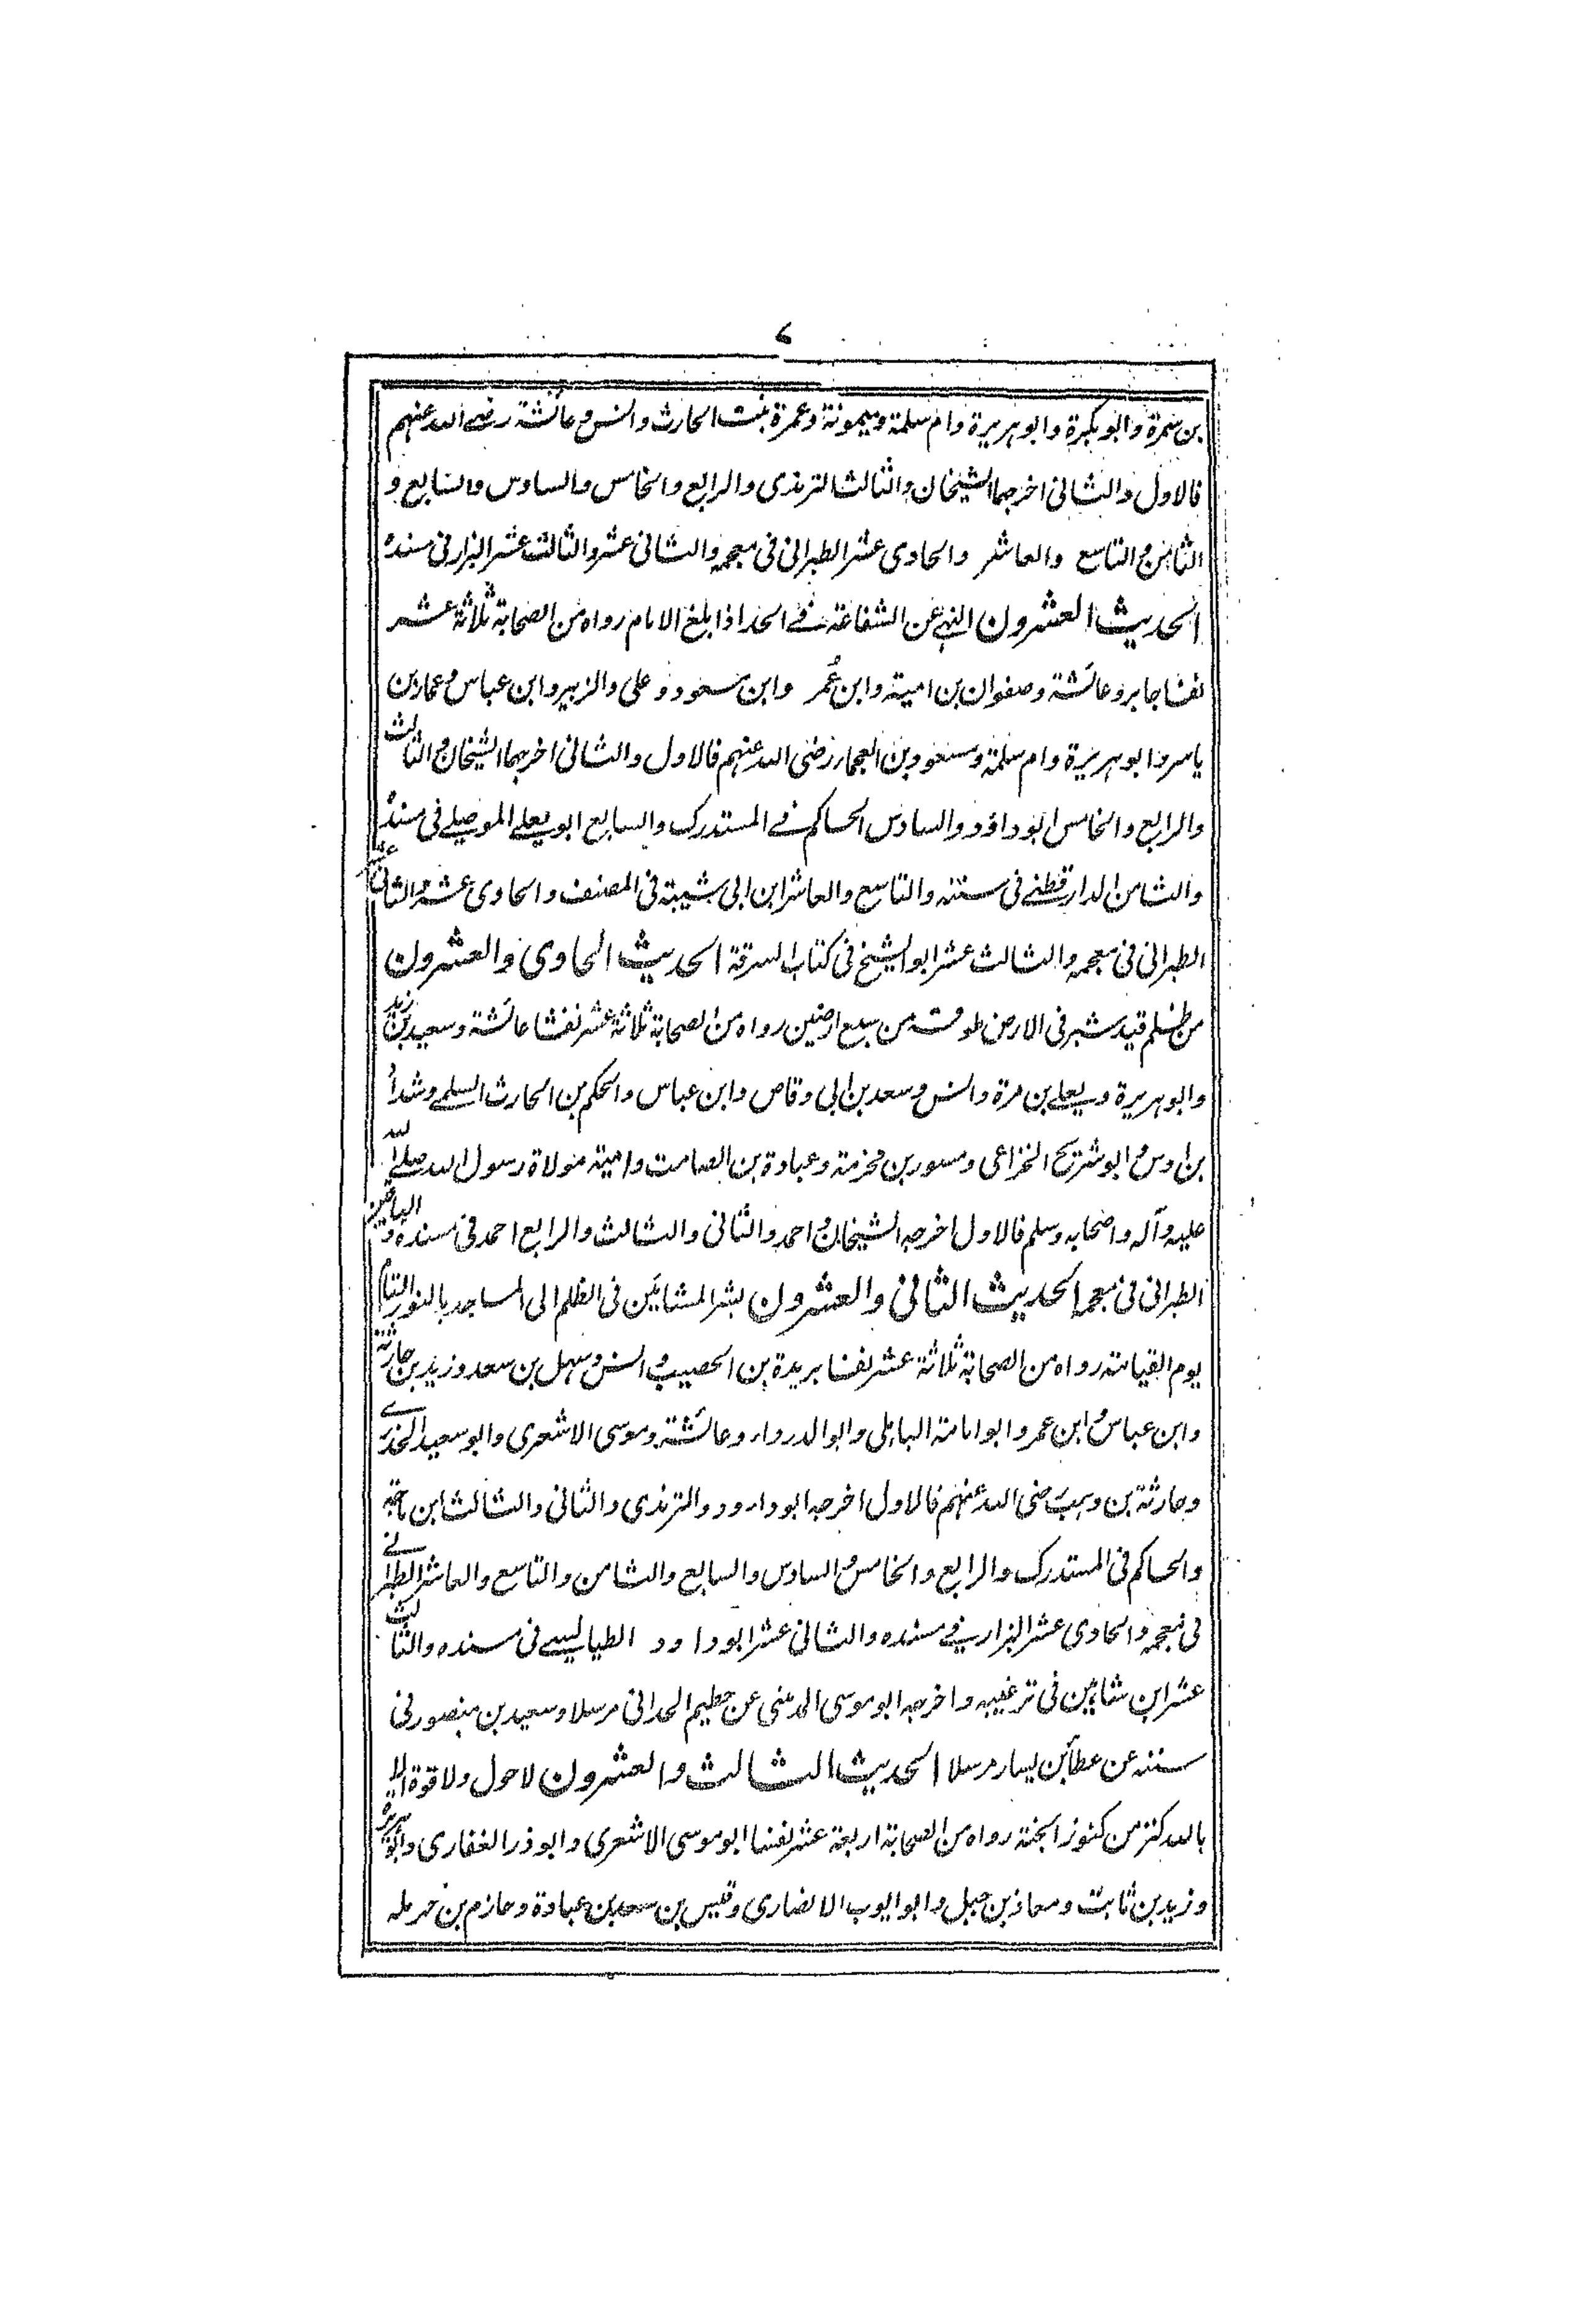 ٧
بن سمرة وابو بكرة وابو هريرة وام سلمة وميمونة وعمرة بنت الحارث وانس وعائشة رضے الله عنهم
فالاول والثانی اخرجهما الشيخان والثالث الترمذی والرابع والخامس والسادس والسابع و
الثامن والتاسع والعاشر والحادی عشر الطبرانی فی معجمه والثانی عشر والثالث عشر البزار فی مسنده
الحديث العشرون النهے عن الشفاعة فے الحد اذا بلغ الامام رواه من الصحابة ثلاثة عشر
نفسا جابر وعائشة وصفوان بن امية وابن عمر وابن مسعود وعلی والزبير وابن عباس وعمار بن
ياسر وابو هريرة وام سلمة ومسعود بن العجمار رضی الله عنهم فالاول والثانی اخرجهما الشيخان والثالث
والرابع والخامس ابو داؤد والسادس الحاكم فے المستدرك والسابع ابو يعلے الموصلے فی مسنده
والثامن الدارقطنے فی سننه والتاسع والعاشر ابن ابی شيبة فی المصنف والحادی عشر والثانی عشر
الطبرانی فی معجمه والثالث عشر ابو الشيخ فی كتاب السرقة الحديث الحادی والعشرون
من ظلم قيد شبر فی الارض طوقه من سبع ارضين رواه من الصحابة ثلاثة عشر نفسا عائشة وسعيد بن زيد
وابو هريرة ويعلے بن مرة وانس وسعد بن ابی وقاص وابن عباس والحكم بن الحارث السلمے وشداد
بن اوس وابو شريح الخزاعی ومسور بن مخرمة وعبادة بن الصامت واميته مولاة رسول الله صلے الله
عليه وآله واصحابه وسلم فالاول اخرجه الشيخان واحمد والثانی والثالث والرابع احمد فی مسنده و الباقين
الطبرانی فی معجمه الحديث الثانی والعشرون بشر المشائين فی الظلم الی المساجد بالنور التام
يوم القيامة رواه من الصحابة ثلاثة عشر نفسا بريدة بن الحصيب وانس وسهل بن سعد وزيد بن حارثة
وابن عباس وابن عمر وابو امامة الباهلی وابو الدرداء وعائشة وموسی الاشعری وابو سعيد الخدرے
وحارثة بن وهب رضی الله عنهم فالاول اخرجه ابو داود والترمذی والثانی والثالث ابن ماجه
والحاكم فی المستدرك والرابع والخامس والسادس والسابع والثامن والتاسع والعاشر الطبرانے
فی معجمه والحادی عشر البزار فے مسنده والثانی عشر ابو داود الطيالسے فی مسنده والثالث
عشر ابن شاهين فی ترغيبه واخرجه ابو موسی المدينی عن حطيم الحدانی مرسلا وسعيد بن منصور فی
سننه عن عطأ بن يسار مرسلا الحديث الثالث والعشرون لا حول ولا قوة الا
بالله كنز من كنوز الجنة رواه من الصحابة اربعة عشر نفسا ابو موسی الاشعری وابو ذر الغفاری وابو هريرة
وزيد بن ثابت ومعاذ بن جبل وابو ايوب الانصاری وقيس بن سعد بن عبادة وحازم بن حرمله